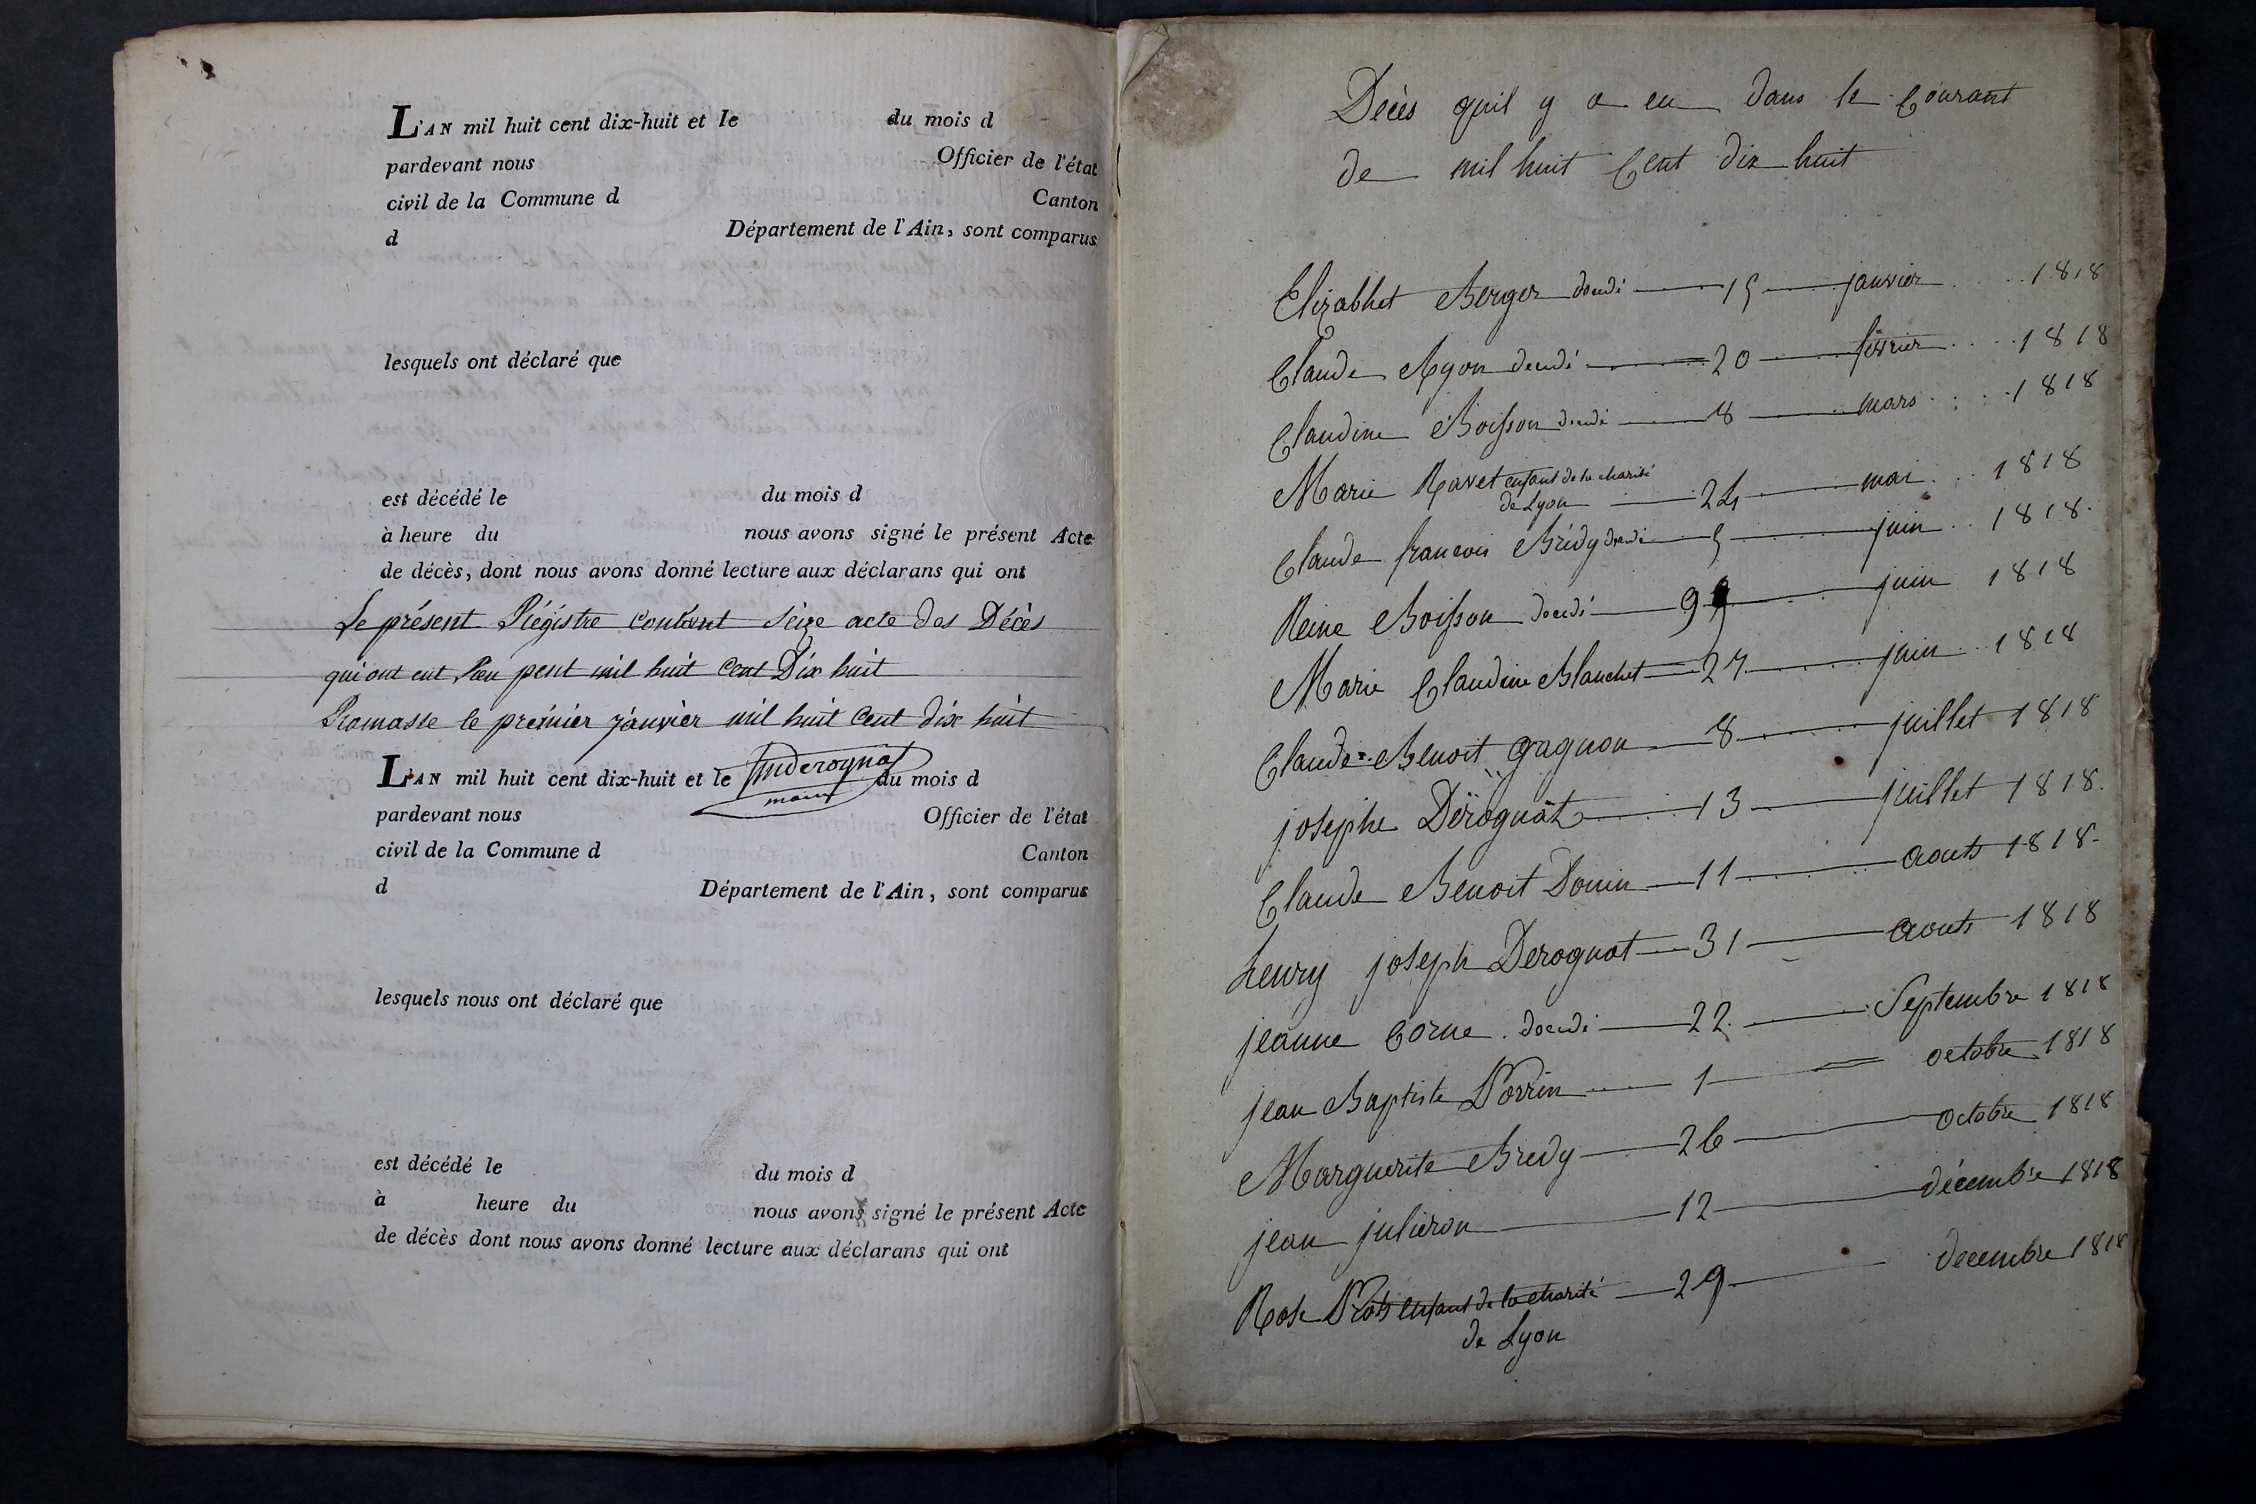 L'AN mil huit cent dix-huit et le du mois d
pardevant nous Officier de l'état
civil de la Commune d Canton
d Département de l'Ain, sont comparus
lesquels ont déclaré que
est décédé le du mois d
à heure du nous avons signé le présent Acte
de décès, dont nous avons donné lecture aux déclarans qui ont
Le présent Régistre contient Seize acte des Décès
qui ont eut lieu pent mil huit cent Dix huit
Ramasse le premier janvier mil huit Cent dix huit
L'AN mil huit cent dix-huit et le du mois d
maire
pardevant nous Officier de l'état
civil de la Commune d Canton
d Département de l'Ain, sont comparus
lesquels nous ont déclaré que
est décédé le du mois d
à heure du nous avons signé le présent Acte
de décès dont nous avons donné lecture aux déclarans qui ont
Décès quil y a eu dans le Courant
de mil huit Cent dix huit
Elizabhet Berger 15 janvier 1818
Claude Ryon 20 février 1818
Claudine Boisson 8 mars 1818
Marie Ravet enfant de la charité
de Lyon 24 mai 1818
Claude francois Brédy 5 juin 1818.
Reine Boisson 9 juin 1818
Marie Claudine Blanchet 27 juin 1818
Claude Benoit gagnon 8 juillet 1818
josephe Dérognat 13 juillet 1818.
Claude Benoit Donin 11 aouts 1818.
henry joseph Derognat 31 aouts 1818
jeanne Corne 22 Septembre 1818
jean Baptiste Porrin 1 octobre 1818
Marguerite Bredy 26 octobre 1818
jean julieron 12 décembre 1818
Rose enfant de la charité 29 decembre 1818
de Lyon